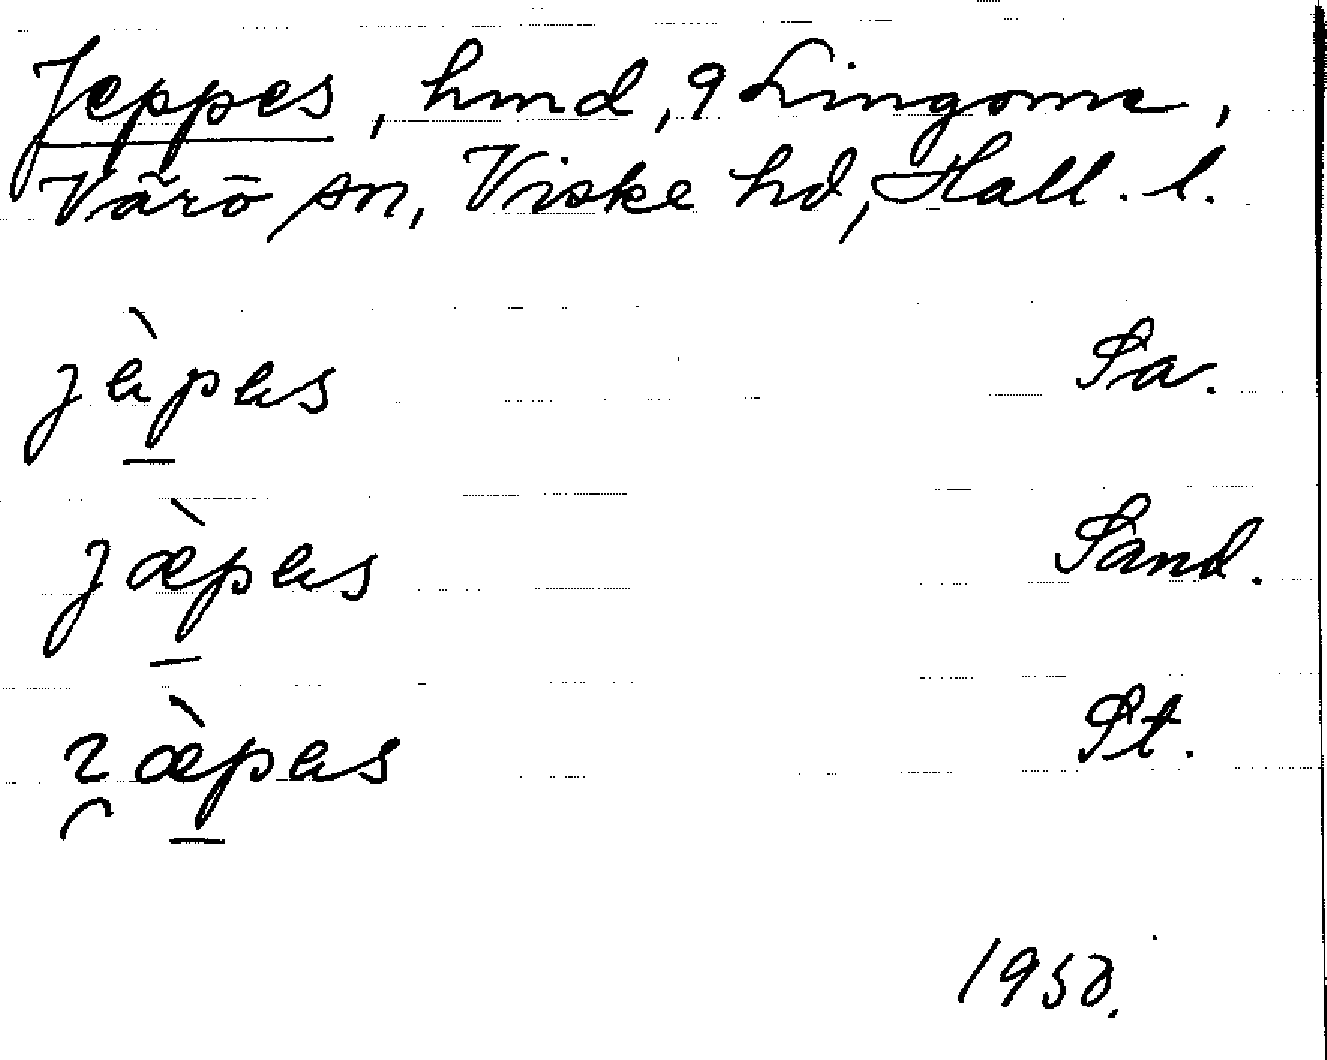 Jeppes, hmd, 9 Lingome,
Värö sn, Viske hd, Hall. l.
jɛ̀pɐs Sa.
jæ̀pɐs Sand.
ɀæ̀pɐs St.
1950.